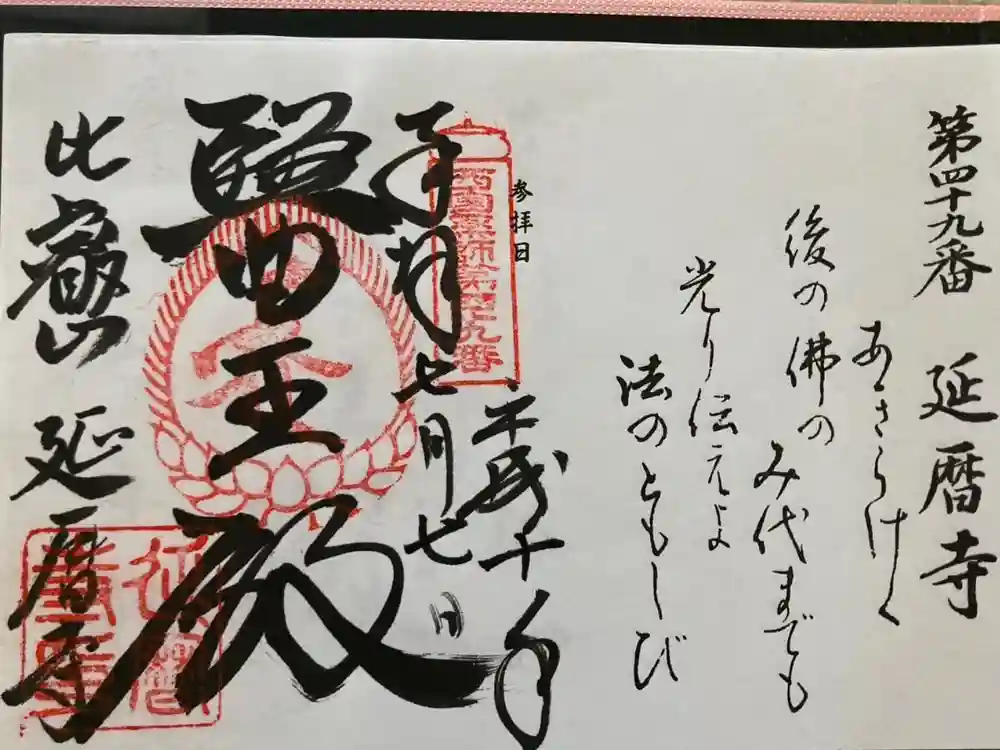 第四十九番 延暦寺
あきらけく
後の佛の
み代までも
光り伝えよ
法のともしび
参拝日
平成十年
七月七日
奉拝
西国薬師第四十九番
醫王殿
比叡山 延暦寺